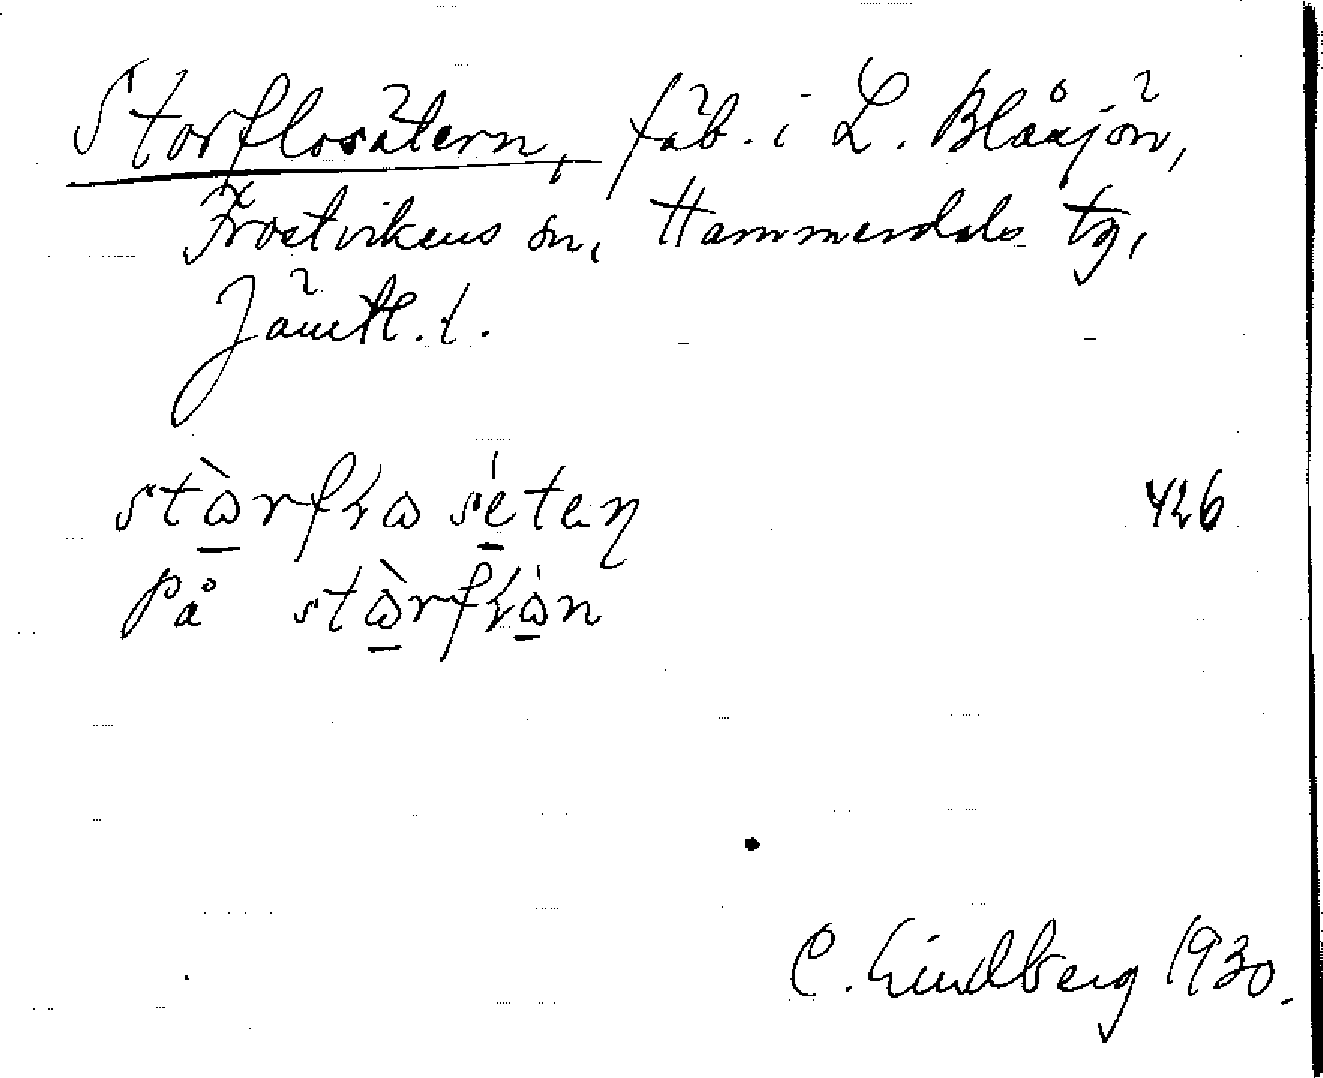 Storflosätern, fäb. i L. Blåsjön,
Frostvikens sn, Hammerdals tg,
Jämtl. l.
426
på
C. Lindberg 1930.